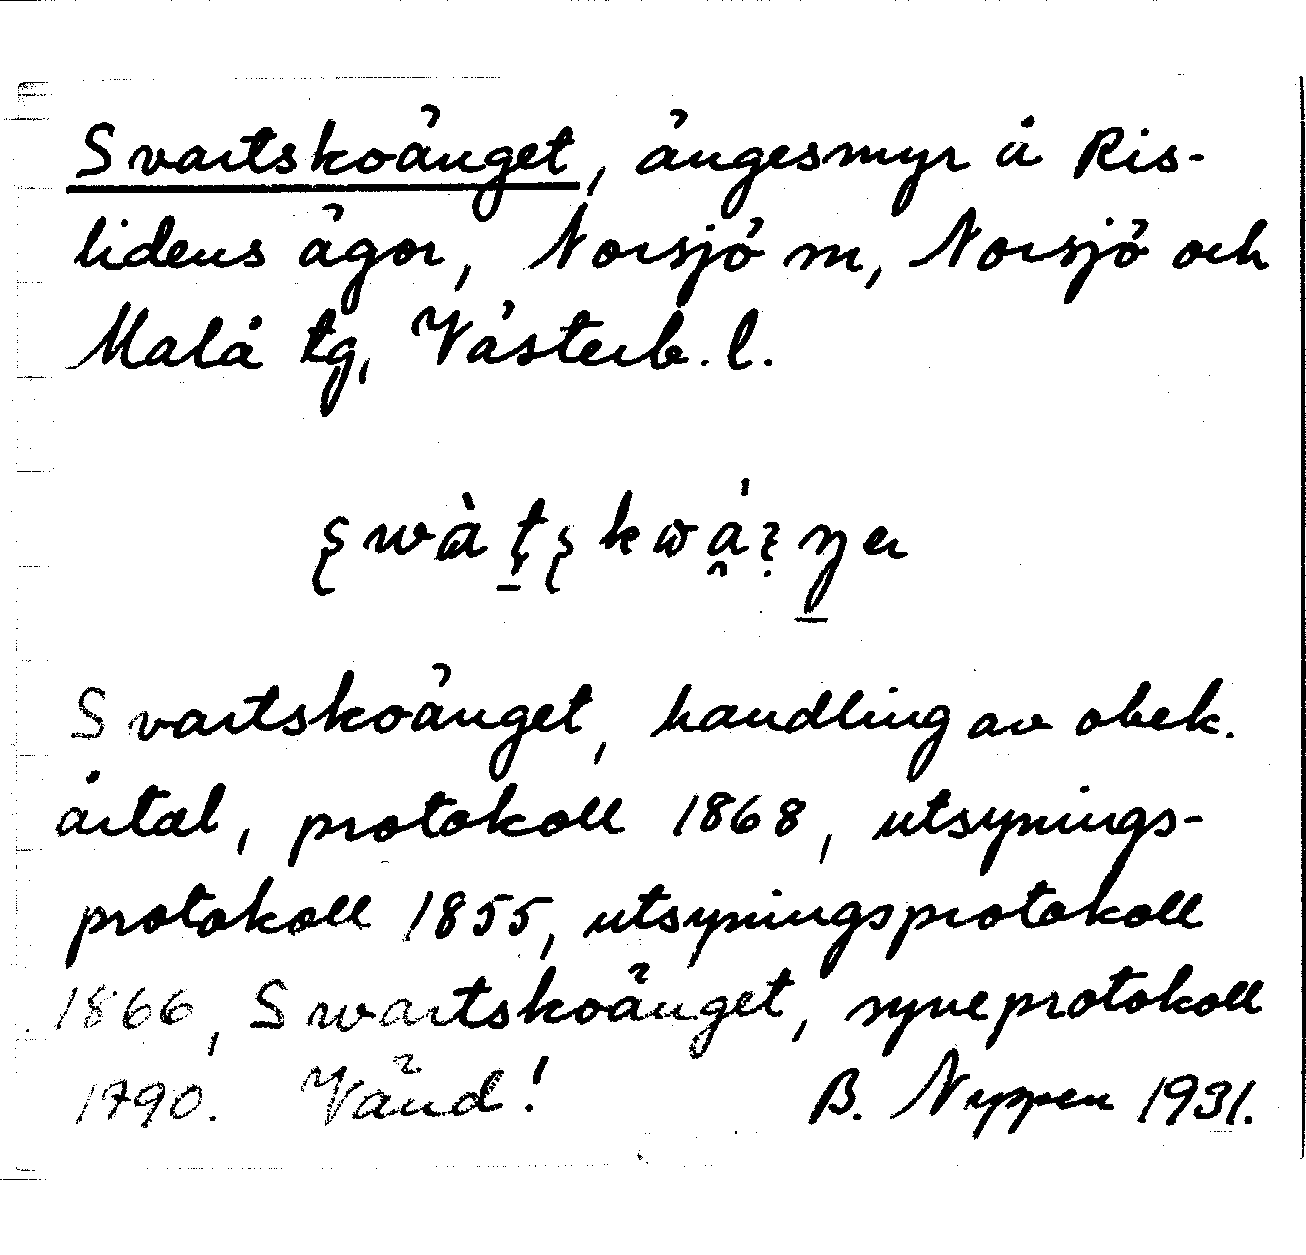 Svartskoänget, ängesmyr å Ris-
lidens ägor, Norsjö sn, Norsjö och
Malå tg, Västerb. l.
Svartskoänget, handling av obek.
årtal, protokoll 1868, utsynings-
protokoll 1855, utsyningsprotokoll
1866, Swartskoänget, syneprotokoll
1790. Vänd! B. Nyppen 1931.